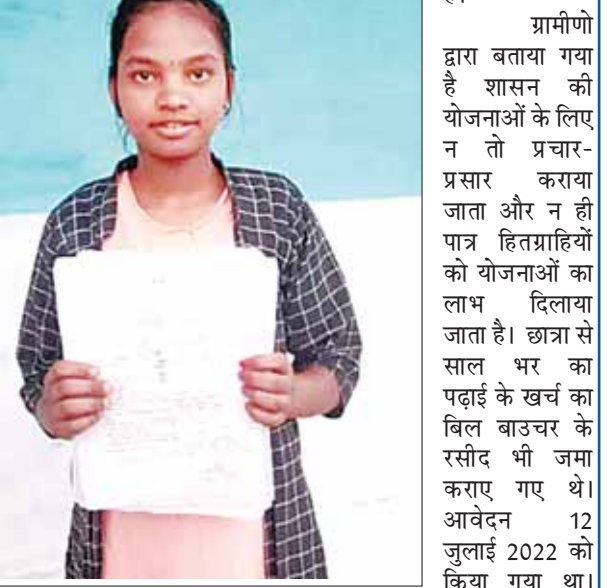 ग्रामीणो
द्वारा बताया गया
है शासन की
योजनाओं के लिए
न तो प्रचार-
प्रसार कराया
जाता और न ही
पात्र हितग्राहियों
को योजनाओं का
लाभ दिलाया
जाता है। छात्रा से
साल भर का
पढ़ाई के खर्च का
बिल बाउचर के
रसीद भी जमा
कराए गए थे।
आवेदन 12
जुलाई 2022 को
किया गया था।